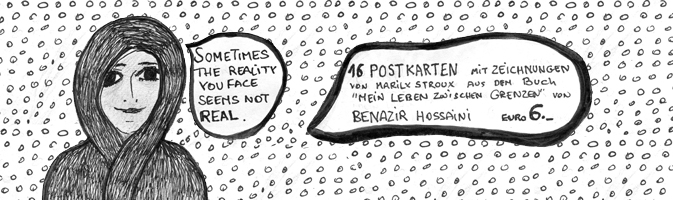 SOMETIMES
THE REALITY
YOU FACE
SEEMS NOT
REAL.
16 POSTKARTEN MIT ZEICHNUNGEN
VON MARILY STROUX AUS DEM BUCH
"MEIN LEBEN ZWISCHEN GRENZEN" VON
BENAZIR HOSSAINI EURO 6.-